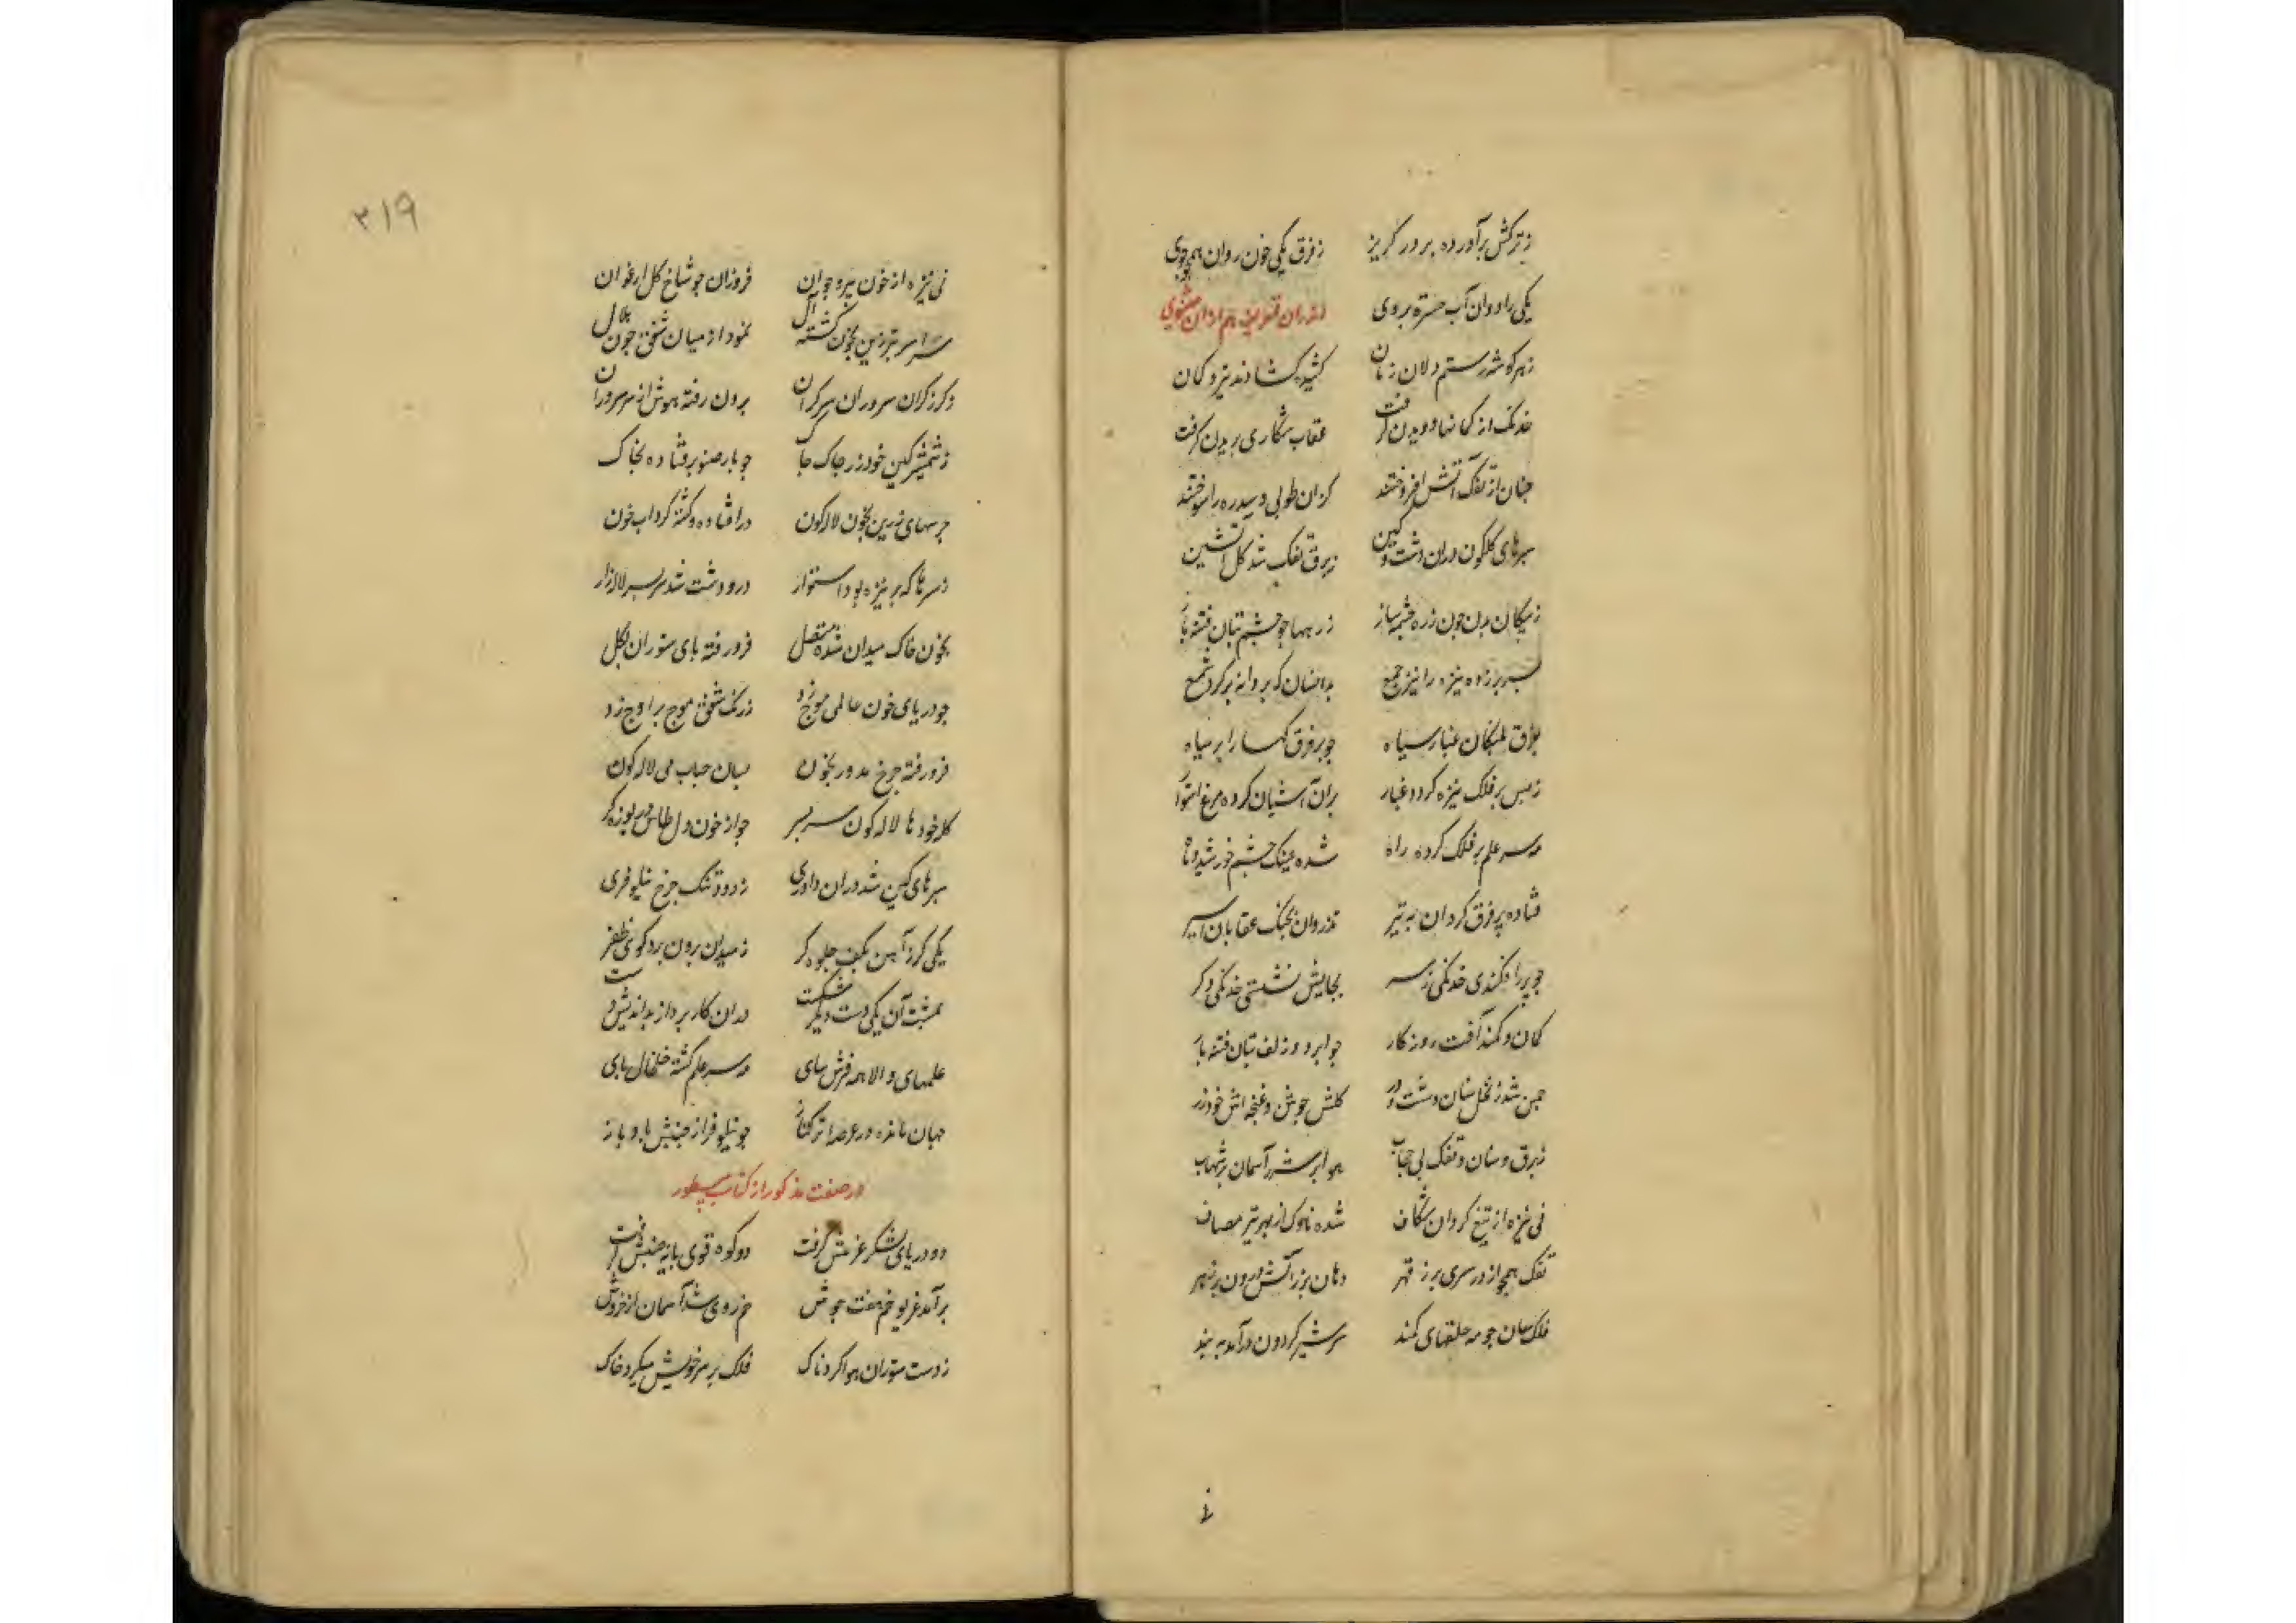 ز ترکش برآورده پر در گریز    ز فرق یکی خون روان همچو جوی
یکی را روان آب حسرت بروی
ز هر گوشه رستم دلان زمان    کشیدند و گشادند تیر و کمان
خدنک از کمانها دویدن گرفت    عقاب شکاری پریدن گرفت
چنان از تفک آتش افروختند    کزان طوبی و سدره را سوختند
سپرهای گلگون دران دشت کین    ز برق تفک شد گل آتشین
ز پیکان بدن چون زره چشمه ساز    زرهها چو چشم بتان فتنه باز
سپر بر زده نیزه را نیز جمع    بدانسان که پروانه بر گرد شمع
بفرق پلنگان غبار سیاه    چو بر فرق کهسار ابر سیاه
ز بس بر فلک نیزه کرد و غبار    بران آشیان کرده مرغ استوار
مه سر علم بر فلک کرده راه    شده عینک چشم خورشید و ماه
فتاده بر فرق گردان به تیر    تذروان بچنک عقابان اسیر
چو پر را فکندی خدنکی ز سر    بجایش نشستی خدنکی دگر
کمان و کمند آفت روزگار    چو ابرو و زلف بتان فتنه بار
چمن شد ز نخل سنان دشت و در    گلش جوشن و غنچه اش خود زر
ز برق سنان و تفک بی حجاب    هوا پر شرر آسمان پر شهاب
نی نیزه از تیغ گردان شکاف    شده ناوک از بهر تیر مصاف
تفک همچو اژدر سری پر ز قهر    دهان پر ز آتش درون پر ز زهر
فلک سان چو مه حلقهای کمند    سر شیر گردون درآمد به بند
۳۱۹
نی نیزه از خون پیر و جوان    فروزان چو شاخ گل ارغوان
سراسر تبرزین بخون گشته آل    نمود از میان شفق چون هلال
ز گرز گران سروران سرگران    برون رفته هوش از سر سروران
ز شمشیر کین خود زر چاک چاک    چو بار صنوبر فتاده بخاک
جرسهای زرین بخون لاله گون    در افتاده و گشته گرداب خون
ز سرها که بر نیزه بود استوار    در و دشت شد سر بسر لاله زار
بخون خاک میدان شده متصل    فرو رفته پای ستوران بگل
چو دریای خون عالمی موج زد    ز رنک شفق موج بر اوج زد
فرو رفته چرخ مدور بخون    بسان حباب می لاله گون
کله خودها لاله گون سر بسر    چو از خون دل طاس دریوزه گر
سپرهای کین شد دران داوری    ز دود تفنک چرخ نیلوفری
یکی گرز آهن بکف جلوه گر    ز میدان برون برد گوی ظفر
بمشت آن یکی دست دیگر شکست    دران کار پرداز بد اندیش دست
علمهای والا همه فرش سای    مه سر علم گشته خلخال پای
جهان مانده در عرصه ترکتاز    چو نیلوفر از جنبش باد باز
در صفت مذکور از کتاب مسطور
دو دریای لشکر غرمش گرفت    دو کوه قوی پایه جنبش گرفت
برآمد غریو خم هفت جوش    خم روی شد آسمان از خروش
ز دست ستوران هوا گردناک    فلک بر سر خویش میکرد خاک